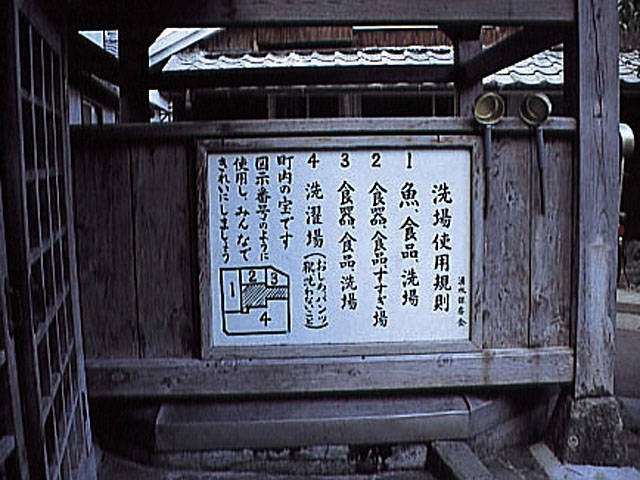 洗場使用規則
1 魚、食品洗場
2 食器、食品すすぎ場
3 食器、食品洗場
4 洗濯場(おしめ、パンツ
靴洗わないこと)
町内の宝です
図示番号のように
使用し、みんなで
きれいにしましょう
1
2
3
4